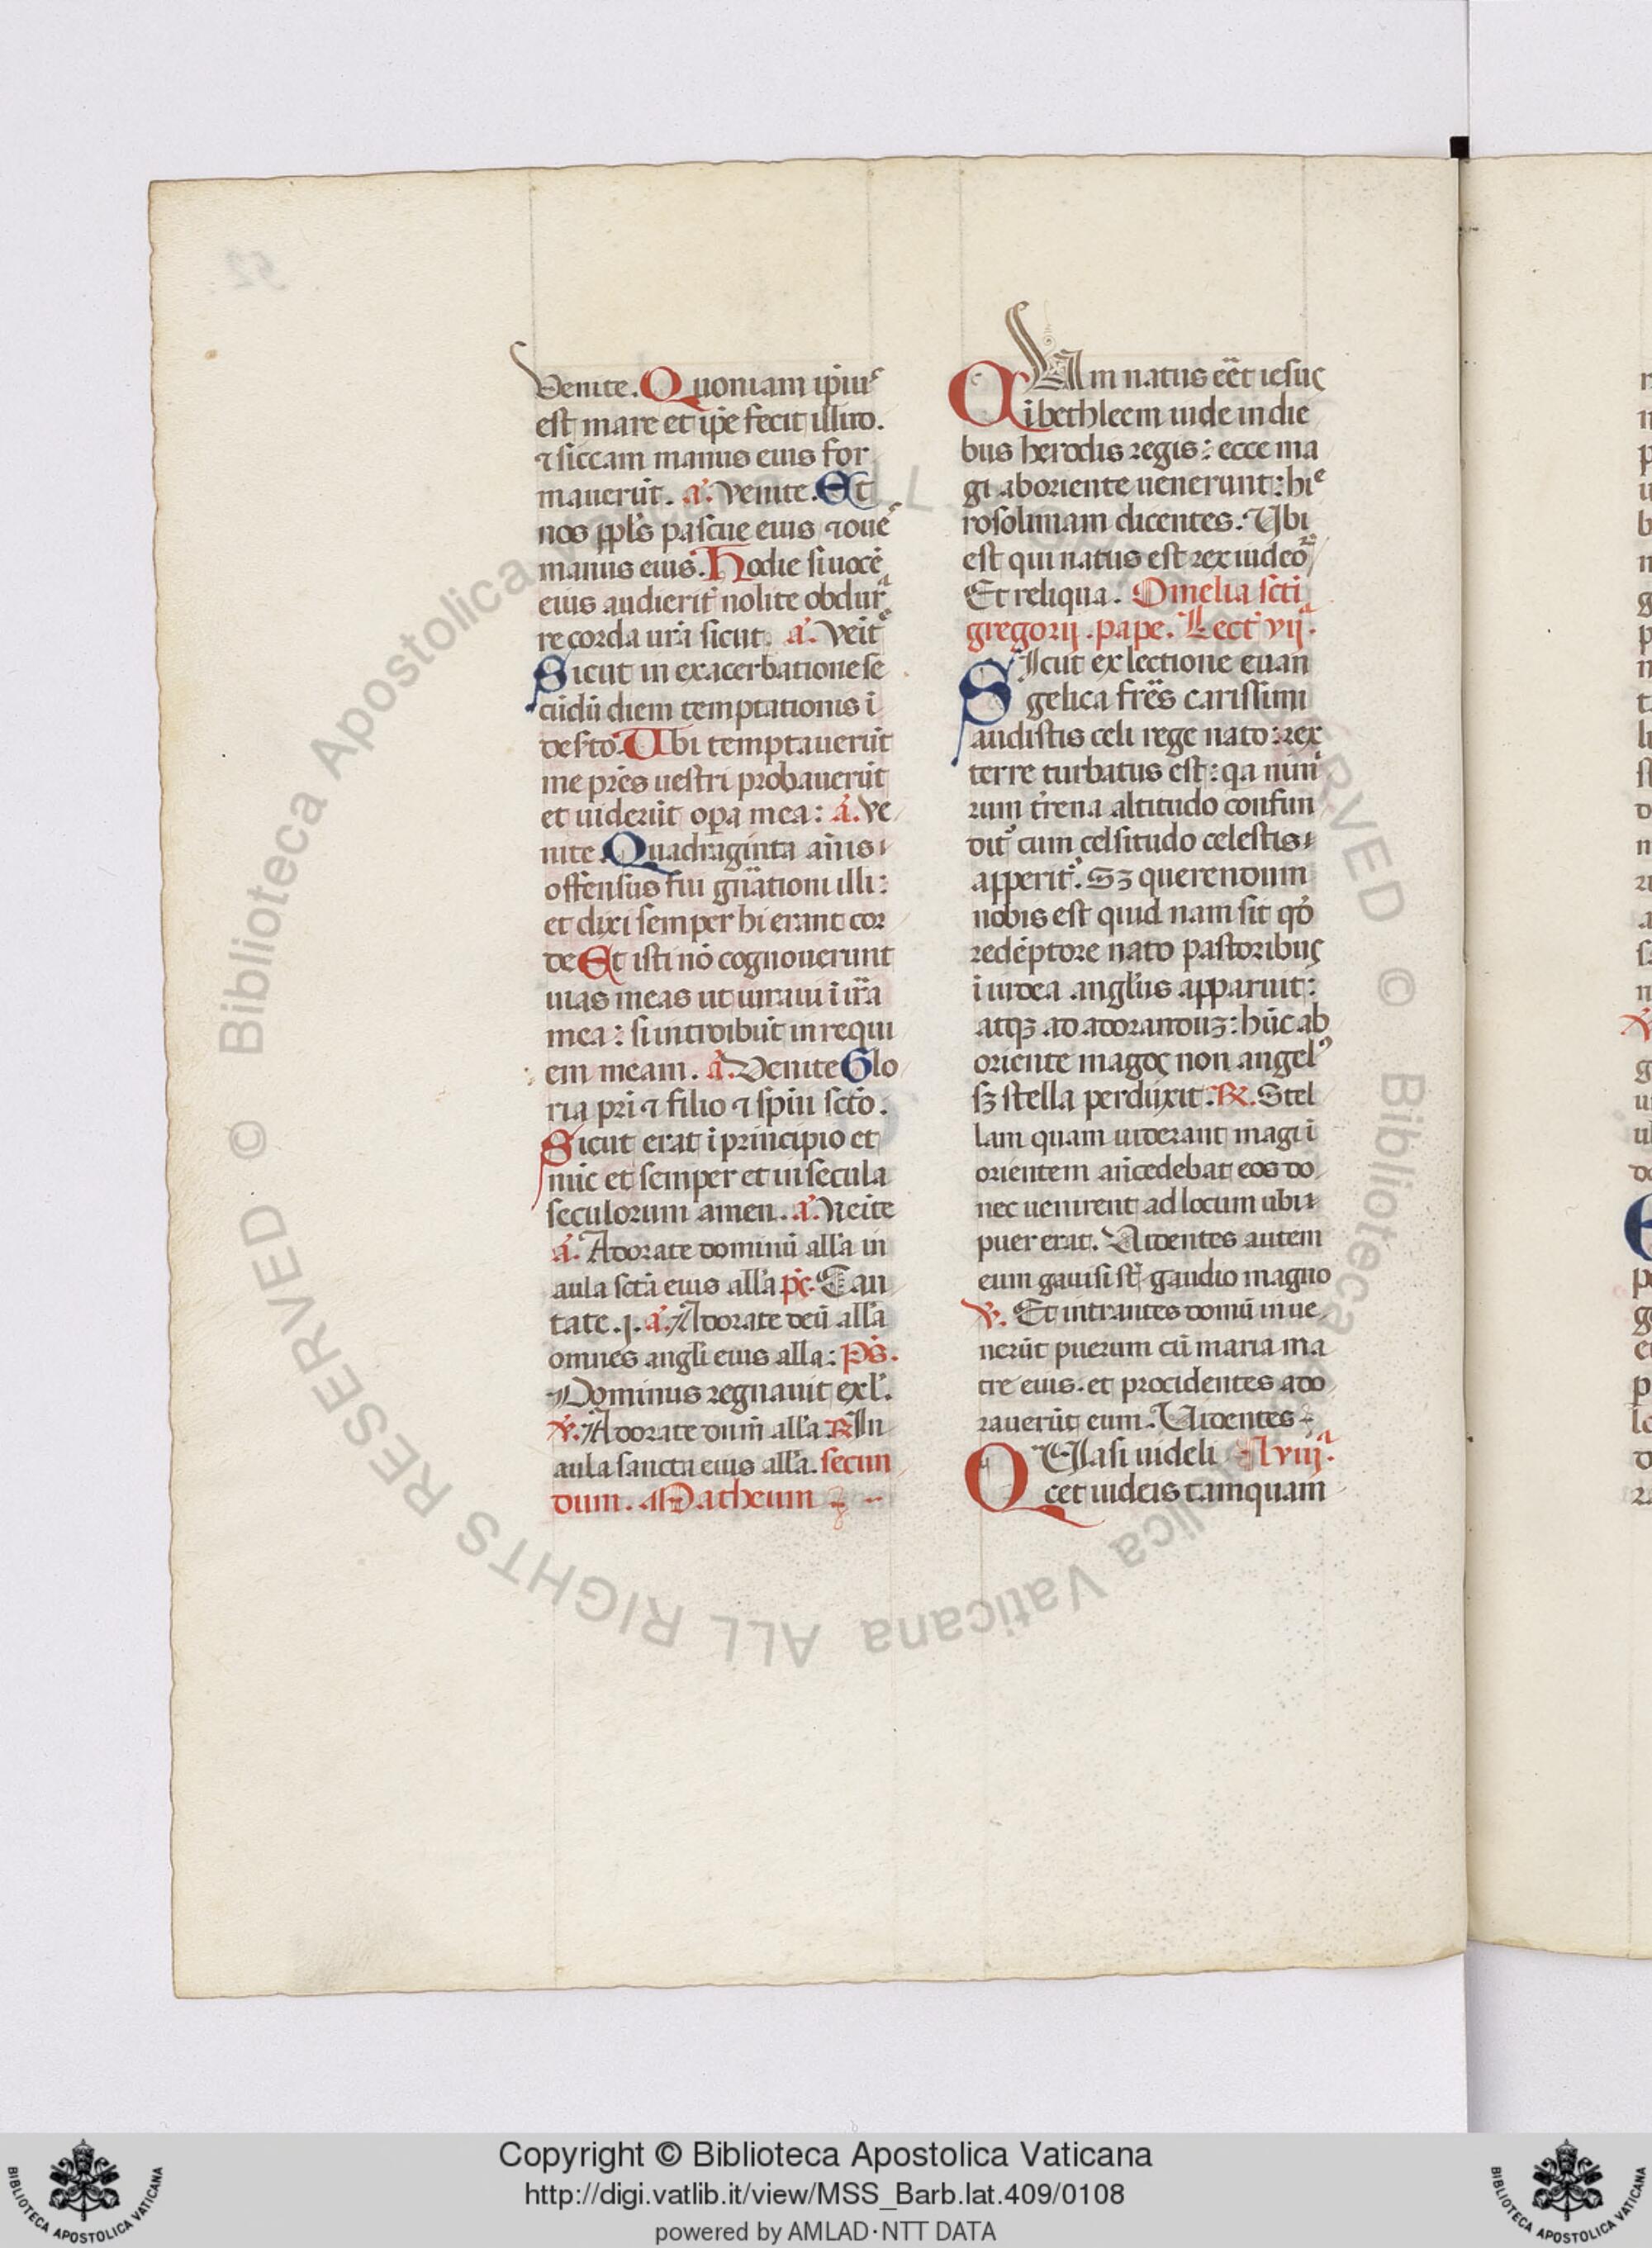 Venite. Quoniam ip̄iuˢ
est mare et ip̄e fecit illuꝺ.
⁊ siccam manus eius for
mauerūt. a᷑. venite. Et
nos ppl̄s pascue eius ⁊ oueˢ
manus eius. Hodie si uocē
eius audierit᷑ nolite obdurᵃ
re corda ur̄a sicut. a᷑. veit̄ᵉ
Sicut in exacerbatione se
cūdū diem temptationis ī
deſto. Ubi temptauerūt
me pr̄es uestri probauerūt
et uiderūt opa mea: a᷑. ve
nite. Quadraginta ān̄is
offensus fui gn̄ationi illi:
et dixi semper hi erant cor
de Et isti nō cognouerunt
uias meas ut iuraui ī ir̄a
mea: si introibūt in requi
em meam. a᷑. Venite Glo
ria pr̄i ⁊ filio ⁊ sp̄iu sc̄tō.
Sicut erat ī principio et
nūc et semper et in secula
seculorum amen. a᷑. Neite
a᷑. Adorate dominū all̄a in
aula sc̄tā eius all̄a p̄s. Can
tate. j. a᷑. Adorate deū all̄a
omnes angl̄i eius all̄a: Ps̄.
Dominus regnauit exl̄.
℣. Adorate dum̄ all̄a ℟ In
aula sancta eius all̄a. secun
dum. Matheum
CUm natus eēt iesus
ī bethleem iude in die
bus herodis regis: ecce ma
gi ab oriente uenerunt: hiᵉ
rosolimam dicentes. Ubi
est qui natus est rex iudeoꝝ
Et reliqua. Omelia sc̄ti
gregorij. pape. Lect᷑ vijᵃ.
SIcut ex lectione euan
gelica fr̄es carissimi
audistis celi rege nato: rex
terre turbatus est: qa nimi
rum t᷑rena altitudo confun
dit᷑ cum celsitudo celestis
apperit᷑. Sꝫ querendum
nobis est quid nam sit qō
redēptore nato pastoribus
ī iudea angl̄us apparuit:
atqꝫ ad adorandūꝫ: hūc ab
oriente magos non angelꝰ
sꝫ stella perduxit. ℟. Stel
lam quam uiderant magi ī
orientem ān̄cedebat eos do
nec uenirent ad locum ubi
puer erat. Uidentes autem
eum gauisi st̄ gaudio magno
℣. Et intrantes domū inue
nerūt puerum cū maria ma
tre eius. et procidentes ado
rauerūt eum. Uidentes
QUIa si uideli Lviijᵃ.
cet iudeis tamquam
Copyright © Biblioteca Apostolica Vaticana
http://digi.vatlib.it/view/MSS_Barb.lat.409/0108
powered by AMLAD·NTT DATA
BIBLIOTECA APOSTOLICA VATICANA
BIBLIOTECA APOSTOLICA VATICANA
© Biblioteca Apostolica Vaticana ALL RIGHTS RESERVED